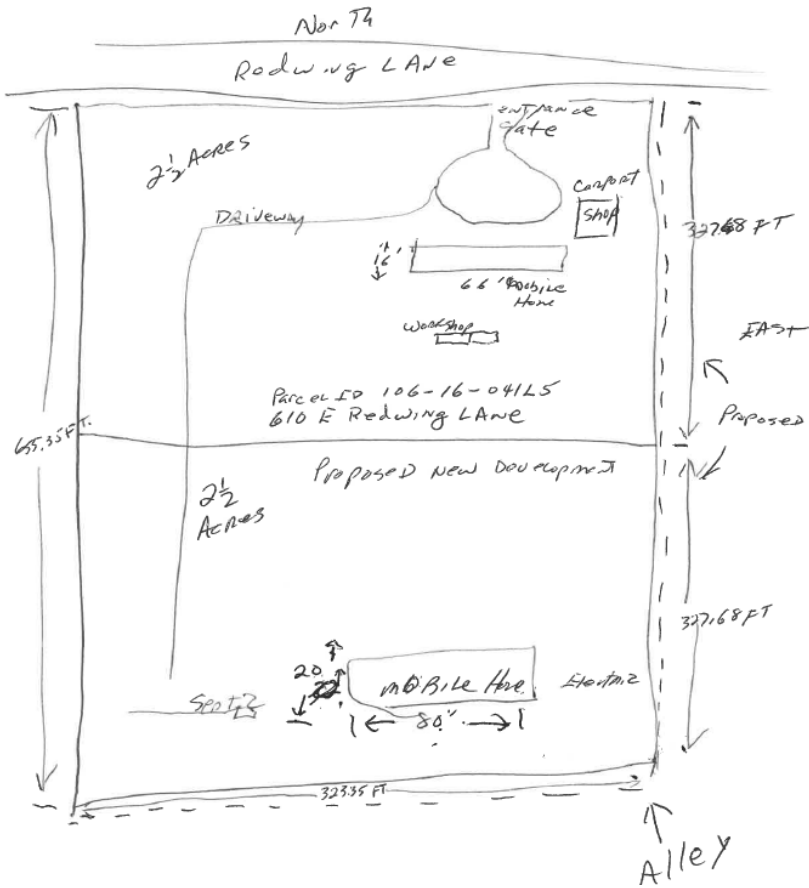 North
Redwing LANE
entrance
gate
2 1/2 ACRES
Carport
Shop
Driveway
327.68 FT
16'
66' Mobile
Home
Workshop
EAST
Parcel ID 106-16-041L5
610 E Redwing LANE
Proposed
655.35 FT.
Proposed New Development
2 1/2
Acres
327.68 FT
20
Septic
mobile Home
Electric
80'
323.35 FT
Alley